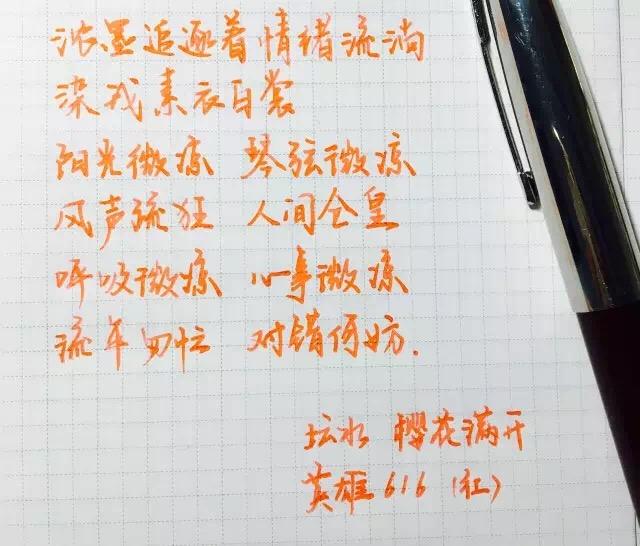 浓墨追逐着情绪流淌
染我素衣白裳
阳光微凉 琴弦微凉
风声疏狂 人间仓皇
呼吸微凉 心事微凉
流年匆忙 对错何妨.
坛水 樱花满开
英雄616(红)